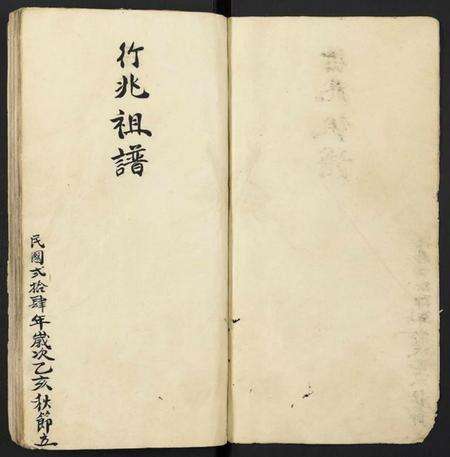 行兆祖譜
民國弍拾肆年歲次乙亥秋節立